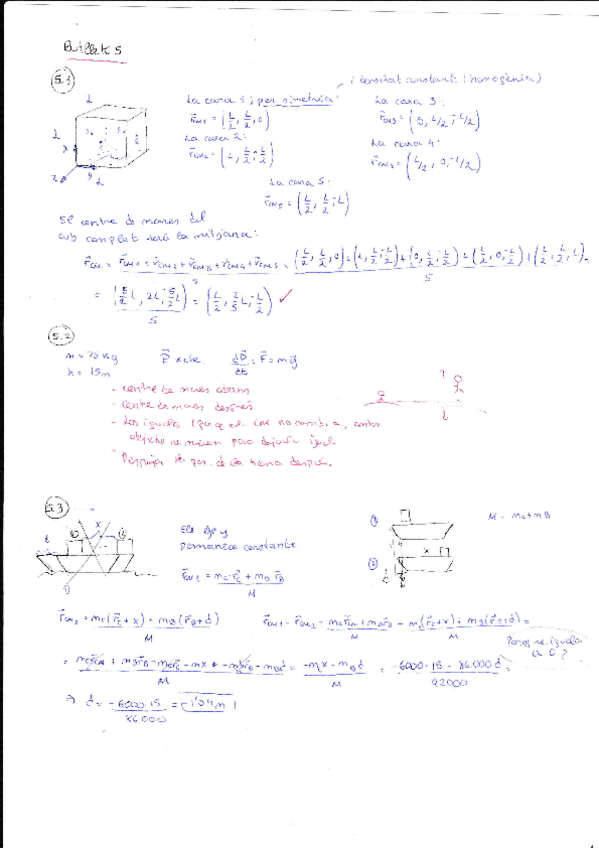 Butlletí 5
5.1
densitat constant (homogènia)
La cara 1, per simetria:
La cara 3:
r_CM1 = (L/2, L/2, 0)
r_CM3 = (0, L/2, -L/2)
La cara 2:
La cara 4:
r_CM2 = (L, L/2, -L/2)
r_CM4 = (L/2, 0, -L/2)
La cara 5:
r_CM5 = (L/2, L/2, -L)
El centre de masses del
cub complet serà la mitjana:
r_CM = (r_CM1 + r_CM2 + r_CM3 + r_CM4 + r_CM5)/5 = ((L/2, L/2, 0) + (L, L/2, -L/2) + (0, L/2, -L/2) + (L/2, 0, -L/2) + (L/2, L/2, -L))/5
= (5/2 L, 2L, -5/2 L)/5 = (L/2, 2/5 L, -L/2) ✓
5.2
m = 75 kg
P = cte
dP/dt = F = mg
h = 15m
- centre de masses abans
- Centre de masses després
- Los igualo (porque el CM no cambia, ambos
objetos se mueven para dejarlo igual
- Despejar la pos. de la tierra después.
5.3
El eje y
permanece constante
M = mc + mB
r_CM1 = (mc·rc + mB rB)/M
r_CM2 = (mc(rc + x) + mB(rB + d))/M
r_CM1 - r_CM2 = (mc rc + mB rB - mc(rc + x) + mB(rB + d))/M =
Porqué se iguala a 0?
= (mc rc + mB rB - mc rc - mx - mB rB - mB d)/M = (-mc x - mB d)/M = (-6000·15 - 86.000 d)/92000 =
⇒ d = -6000·15/86000 = -1'04 m